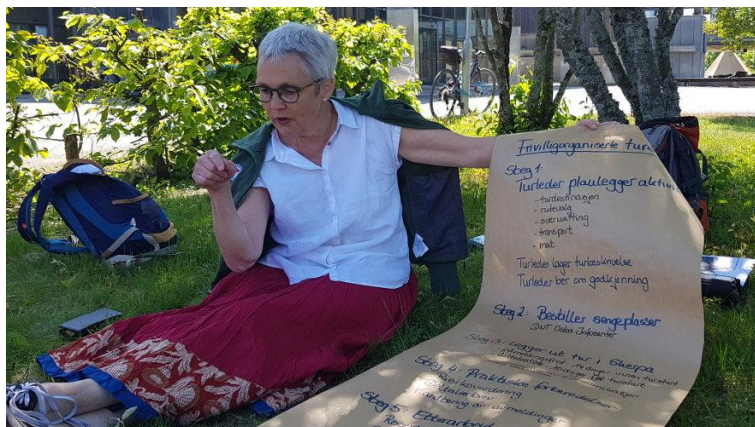 Frivilligorganiserte turer
Steg 1:
Turleder planlegger aktivi
- turdestinasjon
- rutevalg
- overnatting
- transport
- mat
Turleder lager turbeskrivelse
Turleder ber om godkjenning
Steg 2: Bestiller sengeplasser
DNT Oslos Infosenter
Steg 3: Legger ut tur i Sherpa
Steg 4: Praktiske forberedelser
Steg 5: Etterarbeid